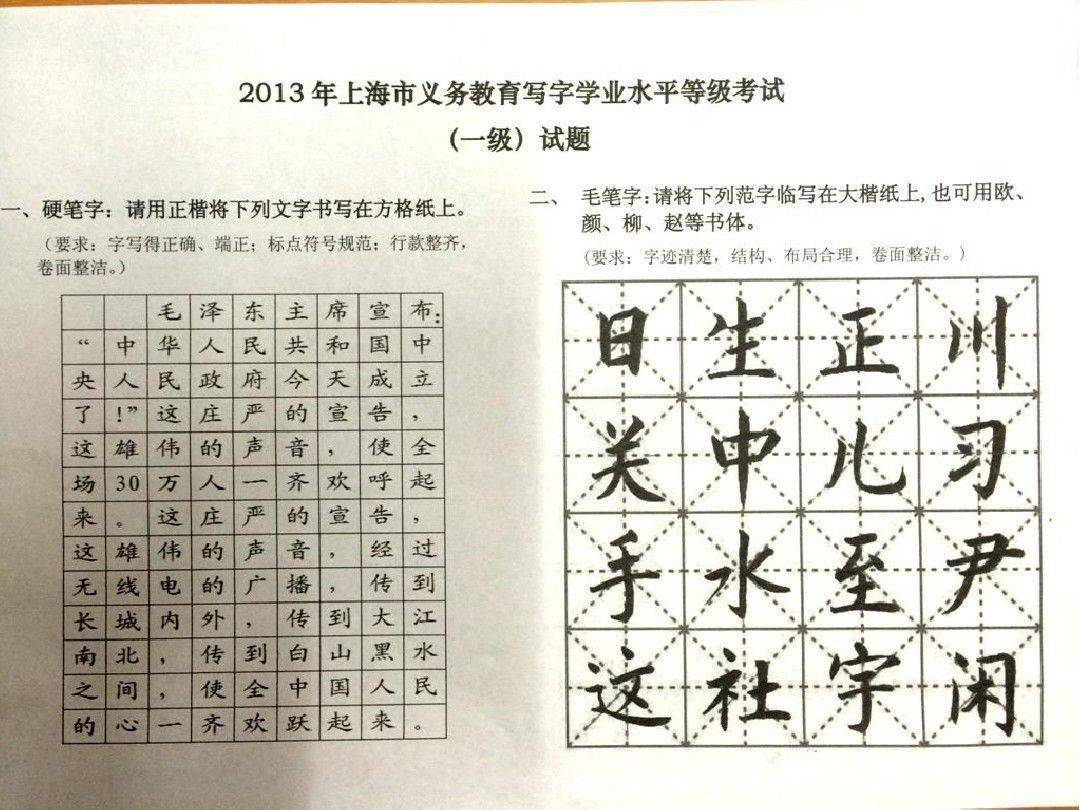 2013年上海市义务教育写字学业水平等级考试
（一级）试题
一、硬笔字：请用正楷将下列文字书写在方格纸上。
（要求：字写得正确、端正；标点符号规范；行款整齐，
卷面整洁。）
毛泽东主席宣布：
“中华人民共和国中
央人民政府今天成立
了！”这庄严的宣告，
这雄伟的声音，使全
场30万人一齐欢呼起
来。这庄严的宣告，
这雄伟的声音，经过
无线电的广播，传到
长城内外，传到大江
南北，传到白山黑水
之间，使全中国人民
的心一齐欢跃起来。
二、毛笔字：请将下列范字临写在大楷纸上，也可用欧、
颜、柳、赵等书体。
（要求：字迹清楚，结构、布局合理，卷面整洁。）
日生正川
关中儿习
手水至尹
这社宇闲